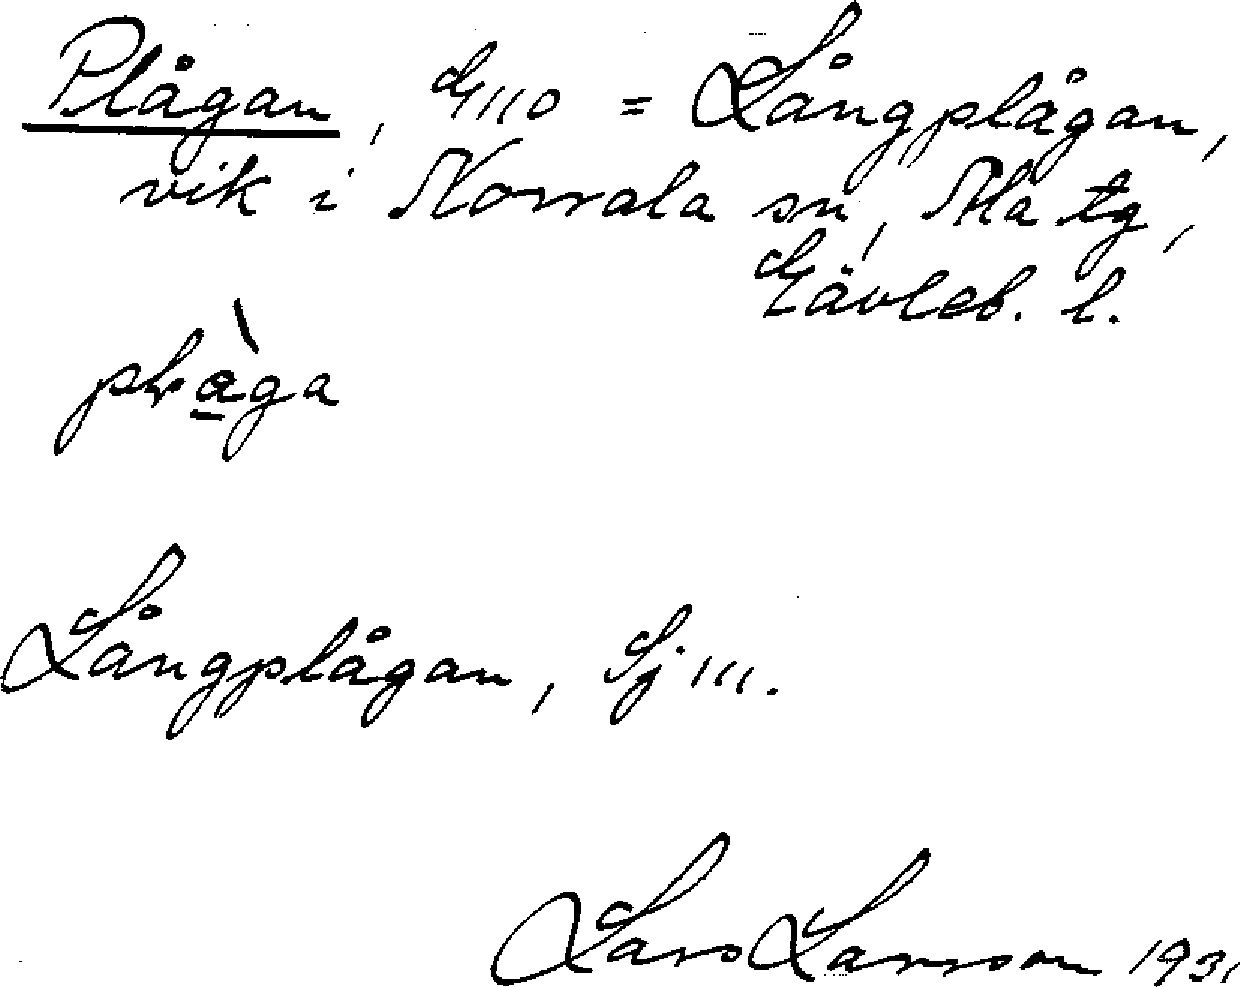 Plågan, G110 = Långplågan,
vik i Norrala sn, Ala tg,
Gävleb. l.
plàga
Långplågan, Sj 111.
Lars Larsson 1931